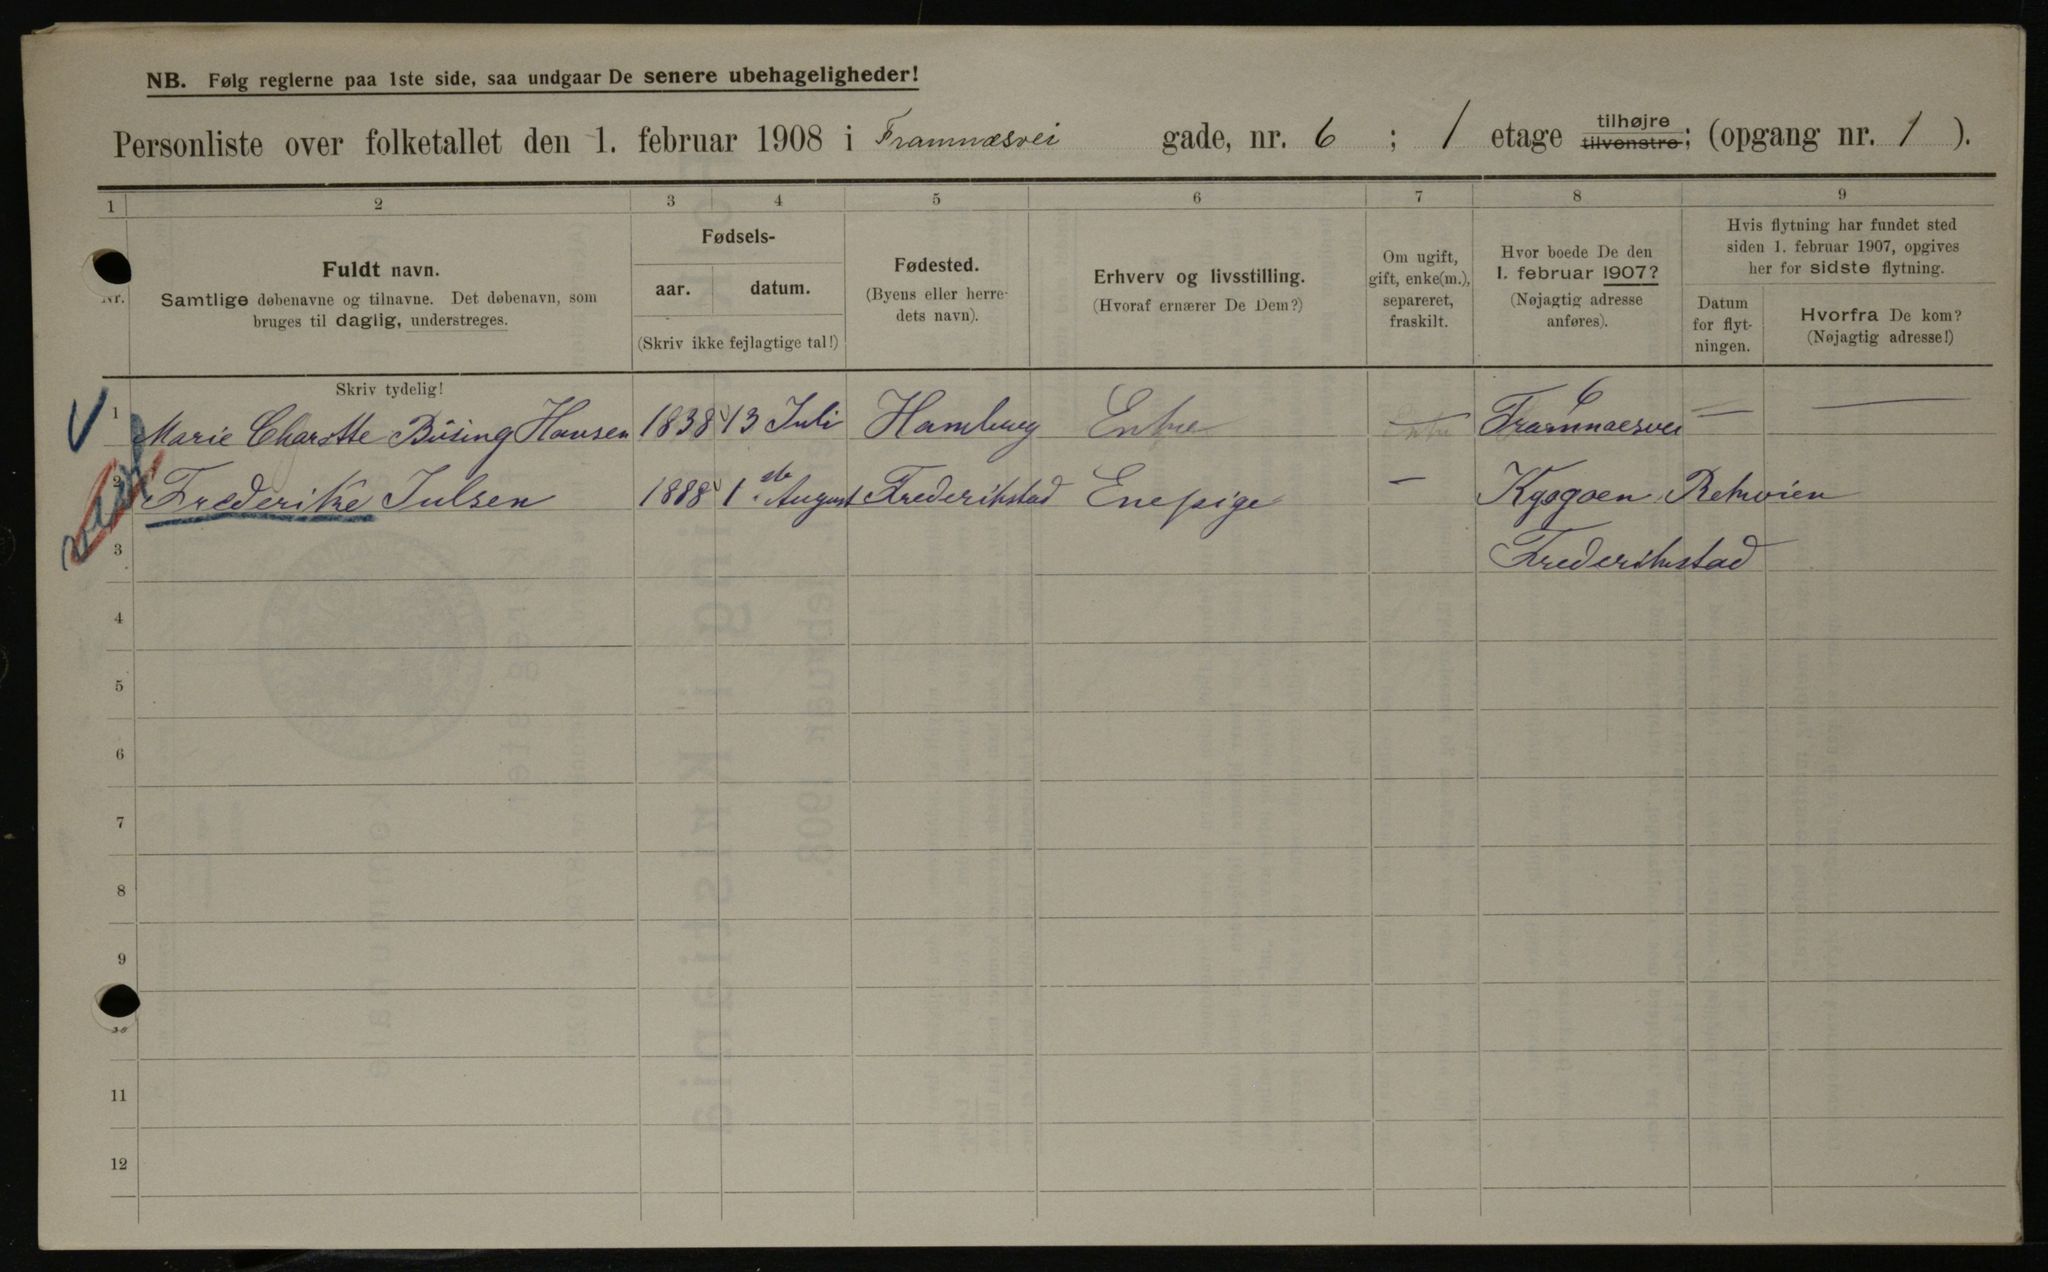 NB. Følg reglerne paa 1ste side, saa undgaar De senere ubehageligheder!
Personliste over folketallet den 1. februar 1908 i Framnæsvei gade, nr. 6 ; 1 etage tilhøjre tilvenstre; (opgang nr. 1 ).
1 2 3 4 5 6 7 8 9
Nr.
Fuldt navn.
Samtlige døbenavne og tilnavne. Det døbenavn, som
bruges til daglig, understreges.
Fødsels-
aar. datum.
(Skriv ikke fejlagtige tal!)
Fødested.
(Byens eller herre-
dets navn).
Erhverv og livsstilling.
(Hvoraf ernærer De Dem?)
Om ugift,
gift, enke(m.),
separeret,
fraskilt.
Hvor boede De den
1. februar 1907?
(Nøjagtig adresse
anføres).
Hvis flytning har fundet sted
siden 1. februar 1907, opgives
her for sidste flytning.
Datum
for flyt-
ningen.
Hvorfra De kom?
(Nøjagtig adresse!)
Skriv tydelig!
1 Marie Charotte Büsing Hansen 1838 13 Juli Hamburg Enke — Framnaesvei 6 — —
2 Frederike Julsen 1888 1ste August Frederikstad Enepige —
3 Frederikstad
4
5
6
7
8
9
10
11
12